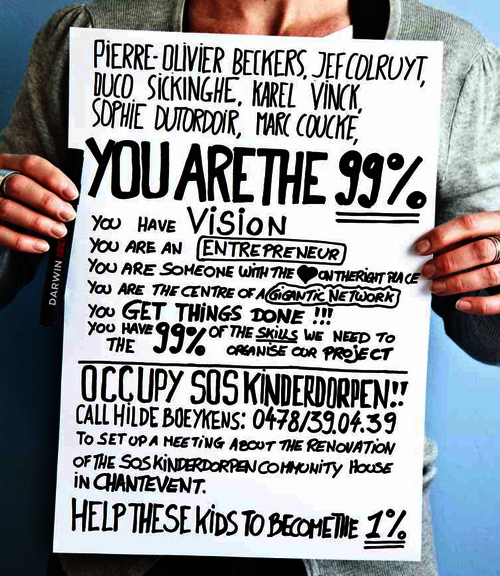 PiERRE-OLIVIER BECKERS, JEF COLRUYT,
DUCO SICKINGHE, KAREL VINCK,
SOPHIE DUTORDOIR, MARC COUCKE,
YOU ARE THE 99%
YOU HAVE ViSiON
YOU ARE AN ENTREPRENEUR
YOU ARE SOMEONE WITH THE ♥ ON THE RIGHT PLACE
YOU ARE THE CENTRE OF A GIGANTIC NETWORK
YOU GET THINGS DONE !!!
YOU HAVE 99% OF THE SKILLS WE NEED TO
THE ORGANISE OUR PROJECT
OCCUPY SOS KINDERDORPEN!!
CALL HILDE BOEYKENS: 0478/39.04.39
TO SET UP A MEETING ABOUT THE RENOVATION
OF THE SOS KINDERDORPEN COMMUNITY HOUSE
iN CHANTEVENT.
HELP THESE KIDS TO BECOME THE 1%
DARWIN